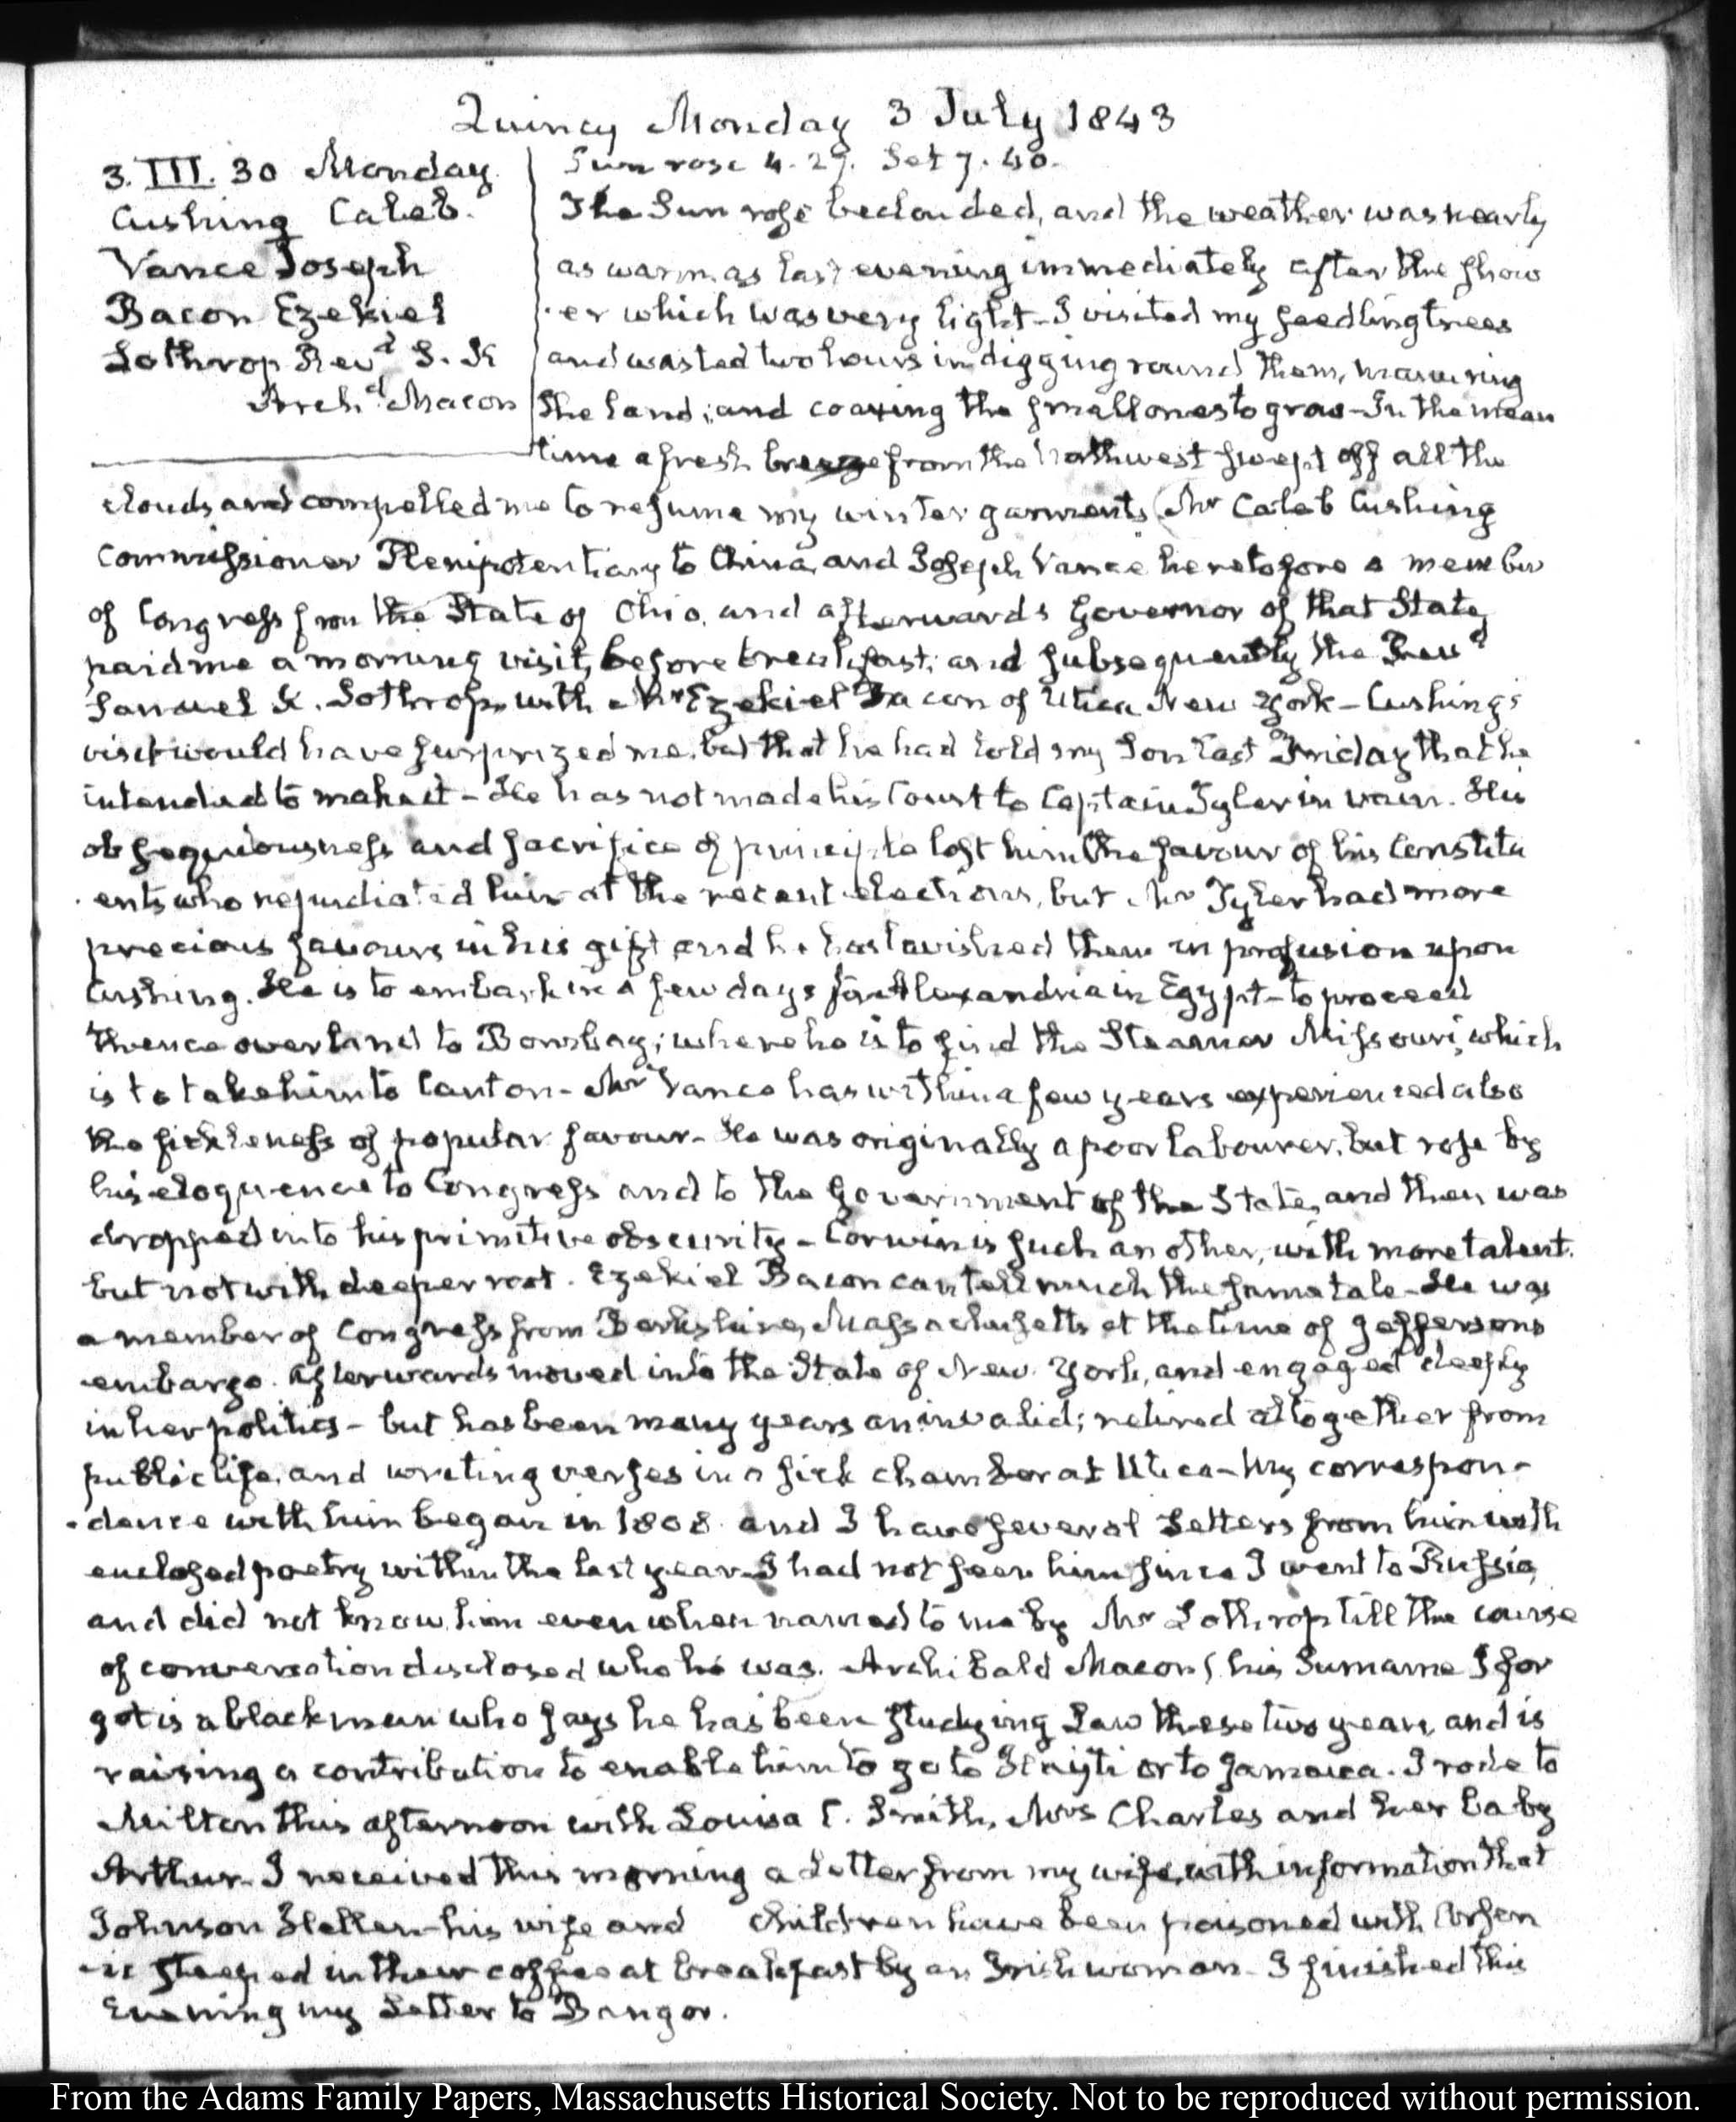 Quincy Monday 3 July 1843
3. III. 30 Monday
Cushing Caleb.
Vance Joseph
Bacon Ezekiel
Lothrop Revd. S. K
Archd. Macon
Sun rose 4. 29. Set 7. 40.
The Sun rose beclouded, and the weather was nearly
as warm as last evening immediately after the show
er which was very light - I visited my seedling trees
and wasted two hours in digging round them, manuring
the land; and coaxing the small ones to grow - In the mean
time a fresh breeze from the Northwest swept off all the
clouds and compelled me to resume my winter garments. Mr Caleb Cushing
Commissioner Plenipotentiary to China, and Joseph Vance heretofore a member
of Congress from the State of Ohio, and afterwards Governor of that State,
paid me a morning visit, before breakfast; and subsequently the Revd.
Samuel K. Lothrop, with Mr Ezekiel Bacon of Utica New York - Cushing's
visit would have surprized me, but that he had told my Son last Friday that he
intended to make it - He has not made his Court to Captain Tyler in vain. His
obsequiousness and sacrifice of principle lost him the favour of his Constitu
ents who repudiated him at the recent elections, but Mr Tyler had more
precious favours in his gift and he has lavished them in profusion upon
Cushing. He is to embark in a few days for Alexandria in Egypt - to proceed
thence over land to Bombay; where he is to find the Steamer Missouri, which
is to take him to Canton - Mr Vance has within a few years experienced also
the fickleness of popular favour - He was originally a poor labourer, but rose by
his eloquence to Congress and to the Government of the State, and then was
dropped into his primitive obscurity - Corwin is such another, with more talent.
but not with deeper root. Ezekiel Bacon can tell much the same tale - He was
a member of Congress from Berkshire, Massachusetts at the time of Jeffersons
embargo. Afterwards moved into the State of New York, and engaged deeply
in her politics - but has been many years an invalid; retired altogether from
public life, and writing verses in a sick chamber at Utica - My correspon-
dence with him began in 1808 and I have several Letters from him with
enclosed poetry within the last year - I had not seen him since I went to Russia,
and did not know him even when named to me by Mr Lothrop till the course
of conversation disclosed who he was. Archibald Macon (his Surname I for
got is a black man who says he has been studying Law these two years, and is
raising a contribution to enable him to go to Hayti or to Jamaica. I rode to
Milton this afternoon with Louisa C. Smith, Mrs Charles and her baby
Arthur. I received this morning a Letter from my wife, with information that
Johnson Hellen - his wife and children have been poisoned with Arsen
ic steeped in their coffee at breakfast by an Irish woman - I finished this
Evening my Letter to Bangor.
From the Adams Family Papers, Massachusetts Historical Society. Not to be reproduced without permission.